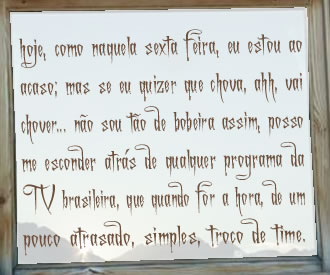 hoje, como naquela sexta feira, eu estou ao
acaso; mas se eu quizer que chova, ahh, vai
chover... não sou tão de bobeira assim, posso
me esconder atrás de qualquer programa da
TV brasileira, que quando for a hora, de um
pouco atrasado, simples, troco de time.